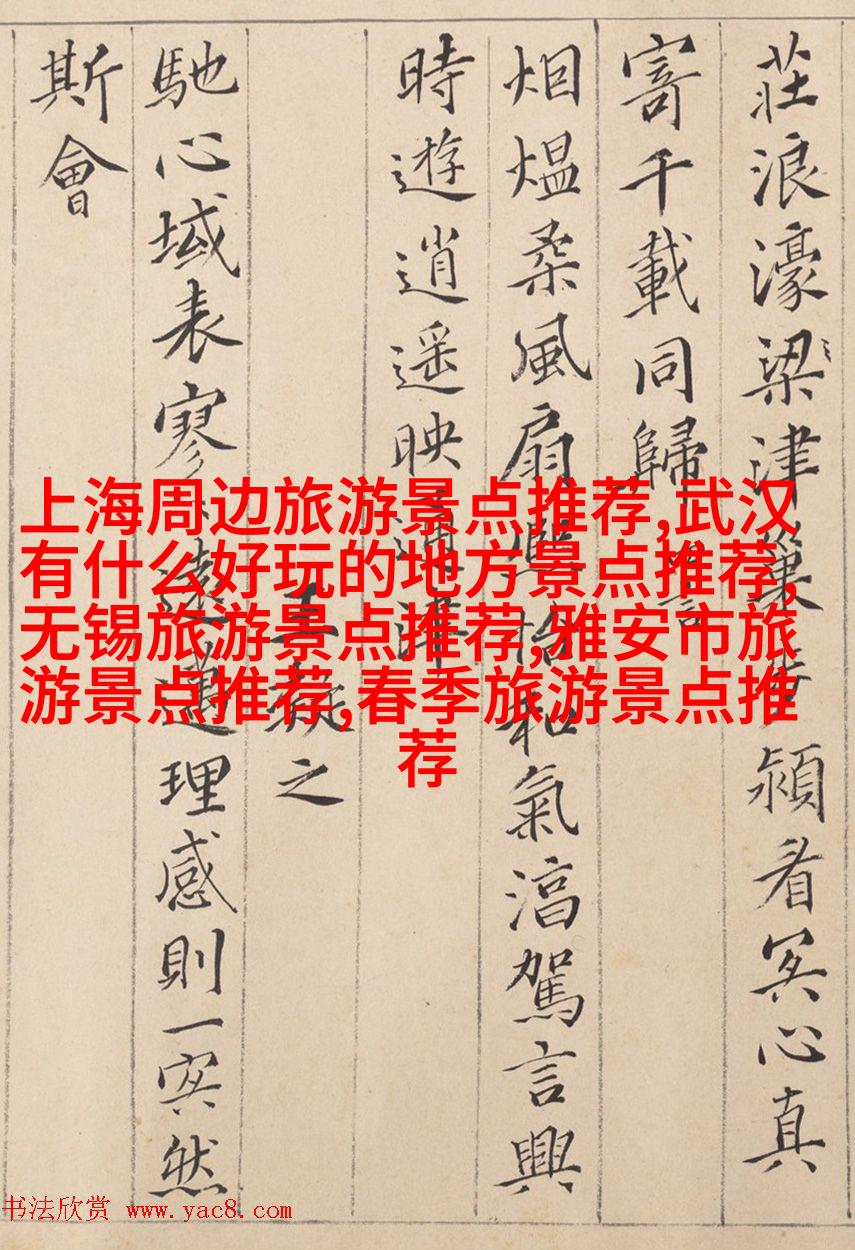 莊浪濠梁津巢步潁看冥心真
寄千載同歸
烟煴柔風扇熙怡和氣淳駕言興
時遊逍遥映通津
之
馳心域表寥寥遠邁理感則一冥然
斯會
上海周边旅游景点推荐,武汉
有什么好玩的地方景点推荐,
无锡旅游景点推荐,雅安市旅
游景点推荐,春季旅游景点推
荐
书法欣赏 www.yac8.com